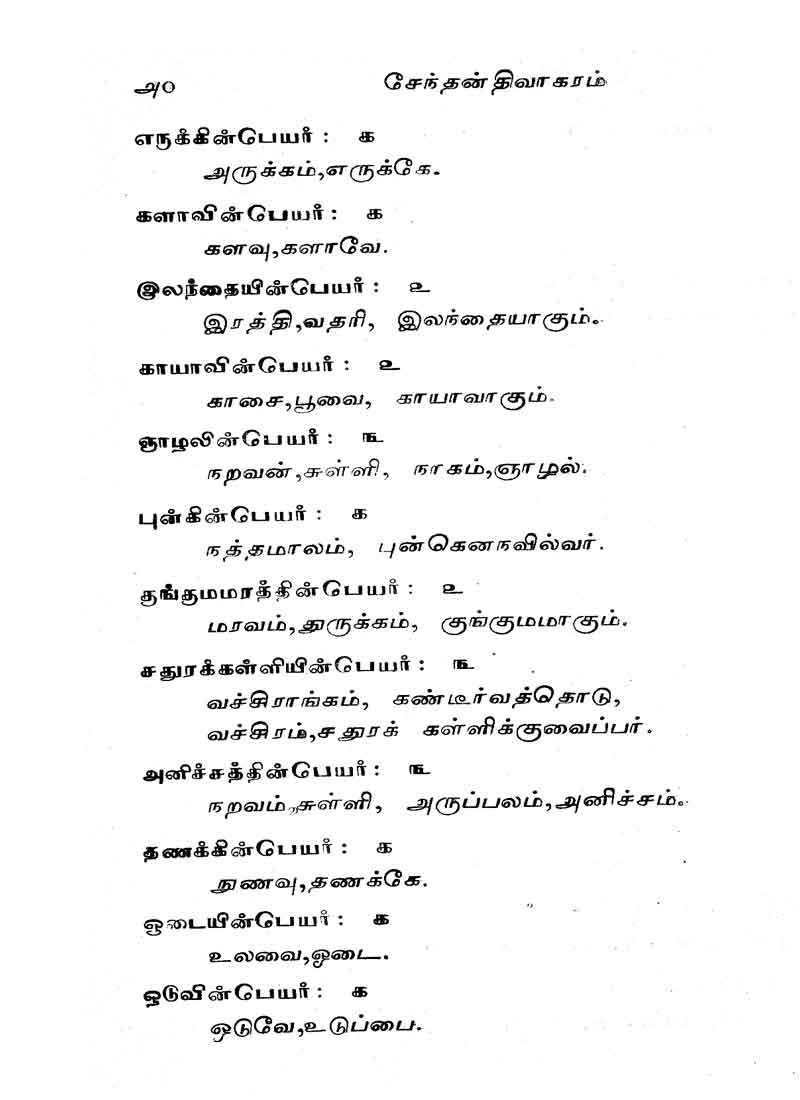 அ௦ சேந்தன் திவாகரம்
எருக்கின்பெயர் : க
அருக்கம்,எருக்கே.
களாவின்பெயர் : க
களவு,களாவே.
இலந்தையின்பெயர் : உ
இரத்தி,வதரி, இலந்தையாகும்.
காயாவின்பெயர் : உ
காசை,பூவை, காயாவாகும்.
ஞாழலின்பெயர் : ௩
நறவன்,சுள்ளி, நாகம்,ஞாழல்.
புன்கின்பெயர் : க
நத்தமாலம், புன்கெனநவில்வர்.
குங்குமமரத்தின்பெயர் : உ
மரவம்,துருக்கம், குங்குமமாகும்.
சதுரக்கள்ளியின்பெயர் : ௩
வச்சிராங்கம், கண்டீர்வத்தொடு,
வச்சிரம்,சதுரக் கள்ளிக்குவைப்பர்.
அனிச்சத்தின்பெயர் : ௩
நறவம்,சுள்ளி, அருப்பலம்,அனிச்சம்.
தணக்கின்பெயர் : க
நுணவு,தணக்கே.
ஓடையின்பெயர் : க
உலவை,ஓடை.
ஒடுவின்பெயர் : க
ஒடுவே,உடுப்பை.